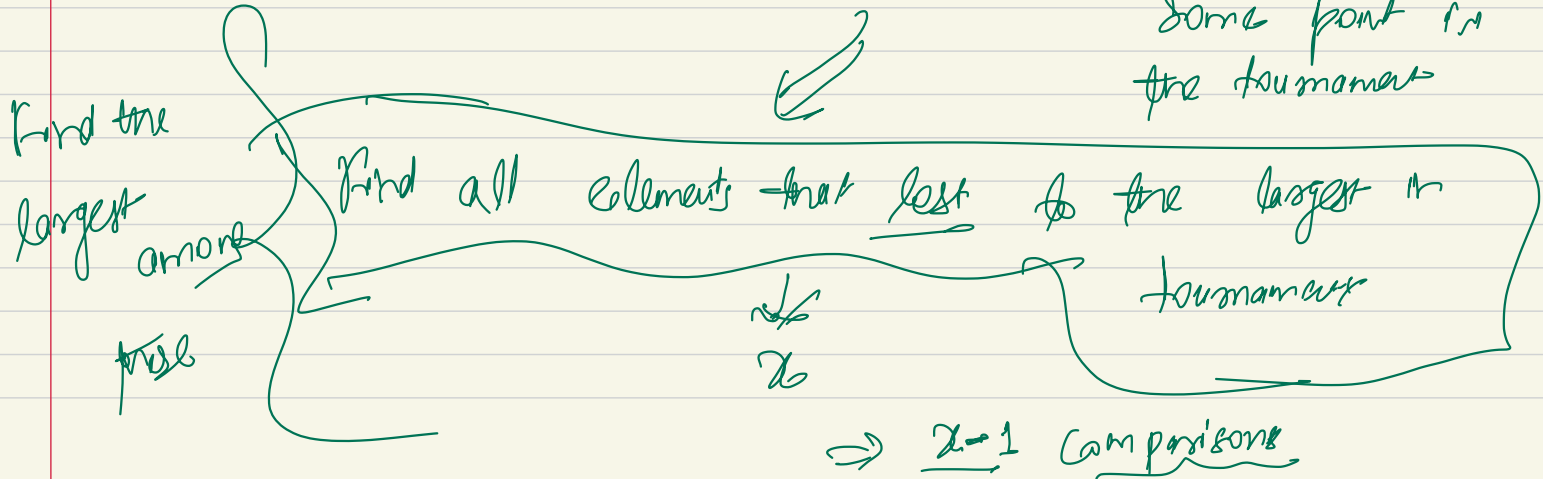 Some point in
the tournament
Find the
largest
among
these
Find all elements that lost to the largest in
tournament
x
⇒ x-1 Comparisons